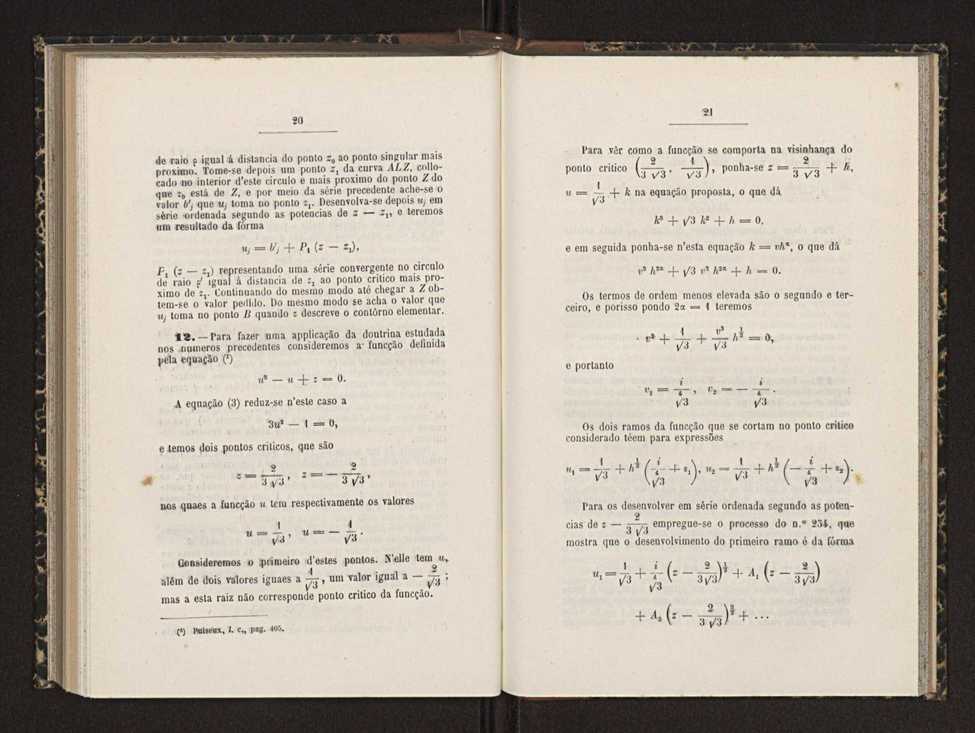 20
de raio ρ igual á distancia do ponto z₀ ao ponto singular mais
proximo. Tome-se depois um ponto z₁ da curva ALZ, collo-
cado no interior d'este circulo e mais proximo do ponto Z do
que z₀ está de Z, e por meio da série precedente ache-se o
valor b'ⱼ que uⱼ toma no ponto z₁. Desenvolva-se depois uⱼ em
série ordenada segundo as potencias de z — z₁, e teremos
um resultado da fórma
uⱼ = b'ⱼ + P₁ (z — z₁),
P₁ (z — z₁) representando uma série convergente no circulo
de raio ρ' igual á distancia de z₁ ao ponto critico mais pro-
ximo de z₁. Continuando do mesmo modo até chegar a Z ob-
tem-se o valor pedido. Do mesmo modo se acha o valor que
uⱼ toma no ponto B quando z descreve o contôrno elementar.
12. — Para fazer uma applicação da doutrina estudada
nos numeros precedentes consideremos a funcção definida
pela equação (¹)
u³ — u + z = 0.
A equação (3) reduz-se n'este caso a
3u² — 1 = 0,
e temos dois pontos criticos, que são
z = 2/(3 √3), z = — 2/(3 √3),
nos quaes a funcção u tem respectivamente os valores
u = 1/√3, u = — 1/√3.
Consideremos o primeiro d'estes pontos. N'elle tem u,
além de dois valores iguaes a 1/√3, um valor igual a — 2/√3;
mas a esta raiz não corresponde ponto critico da funcção.
(¹) Puiseux, l. c., pag. 405.
21
Para vêr como a funcção se comporta na visinhança do
ponto critico (2/(3 √3), 1/√3), ponha-se z = 2/(3 √3) + h,
u = 1/√3 + k na equação proposta, o que dá
k³ + √3 k² + h = 0,
e em seguida ponha-se n'esta equação k = vhᵅ, o que dá
v³ h³ᵅ + √3 v² h²ᵅ + h = 0.
Os termos de ordem menos elevada são o segundo e ter-
ceiro, e porisso pondo 2α = 1 teremos
v² + 1/√3 + v³/√3 h^½ = 0,
e portanto
v₁ = i/⁴√3, v₂ = — i/⁴√3.
Os dois ramos da funcção que se cortam no ponto critico
considerado têem para expressões
u₁ = 1/√3 + h^½ (i/⁴√3 + ε₁), u₂ = 1/√3 + h^½ (— i/⁴√3 + ε₂).
Para os desenvolver em série ordenada segundo as poten-
cias de z — 2/(3 √3) empregue-se o processo do n.º 254, que
mostra que o desenvolvimento do primeiro ramo é da fórma
u₁ = 1/√3 + i/⁴√3 (z — 2/(3√3))^½ + A₁ (z — 2/(3√3))
+ A₂ (z — 2/(3 √3))^(3/2) + ...